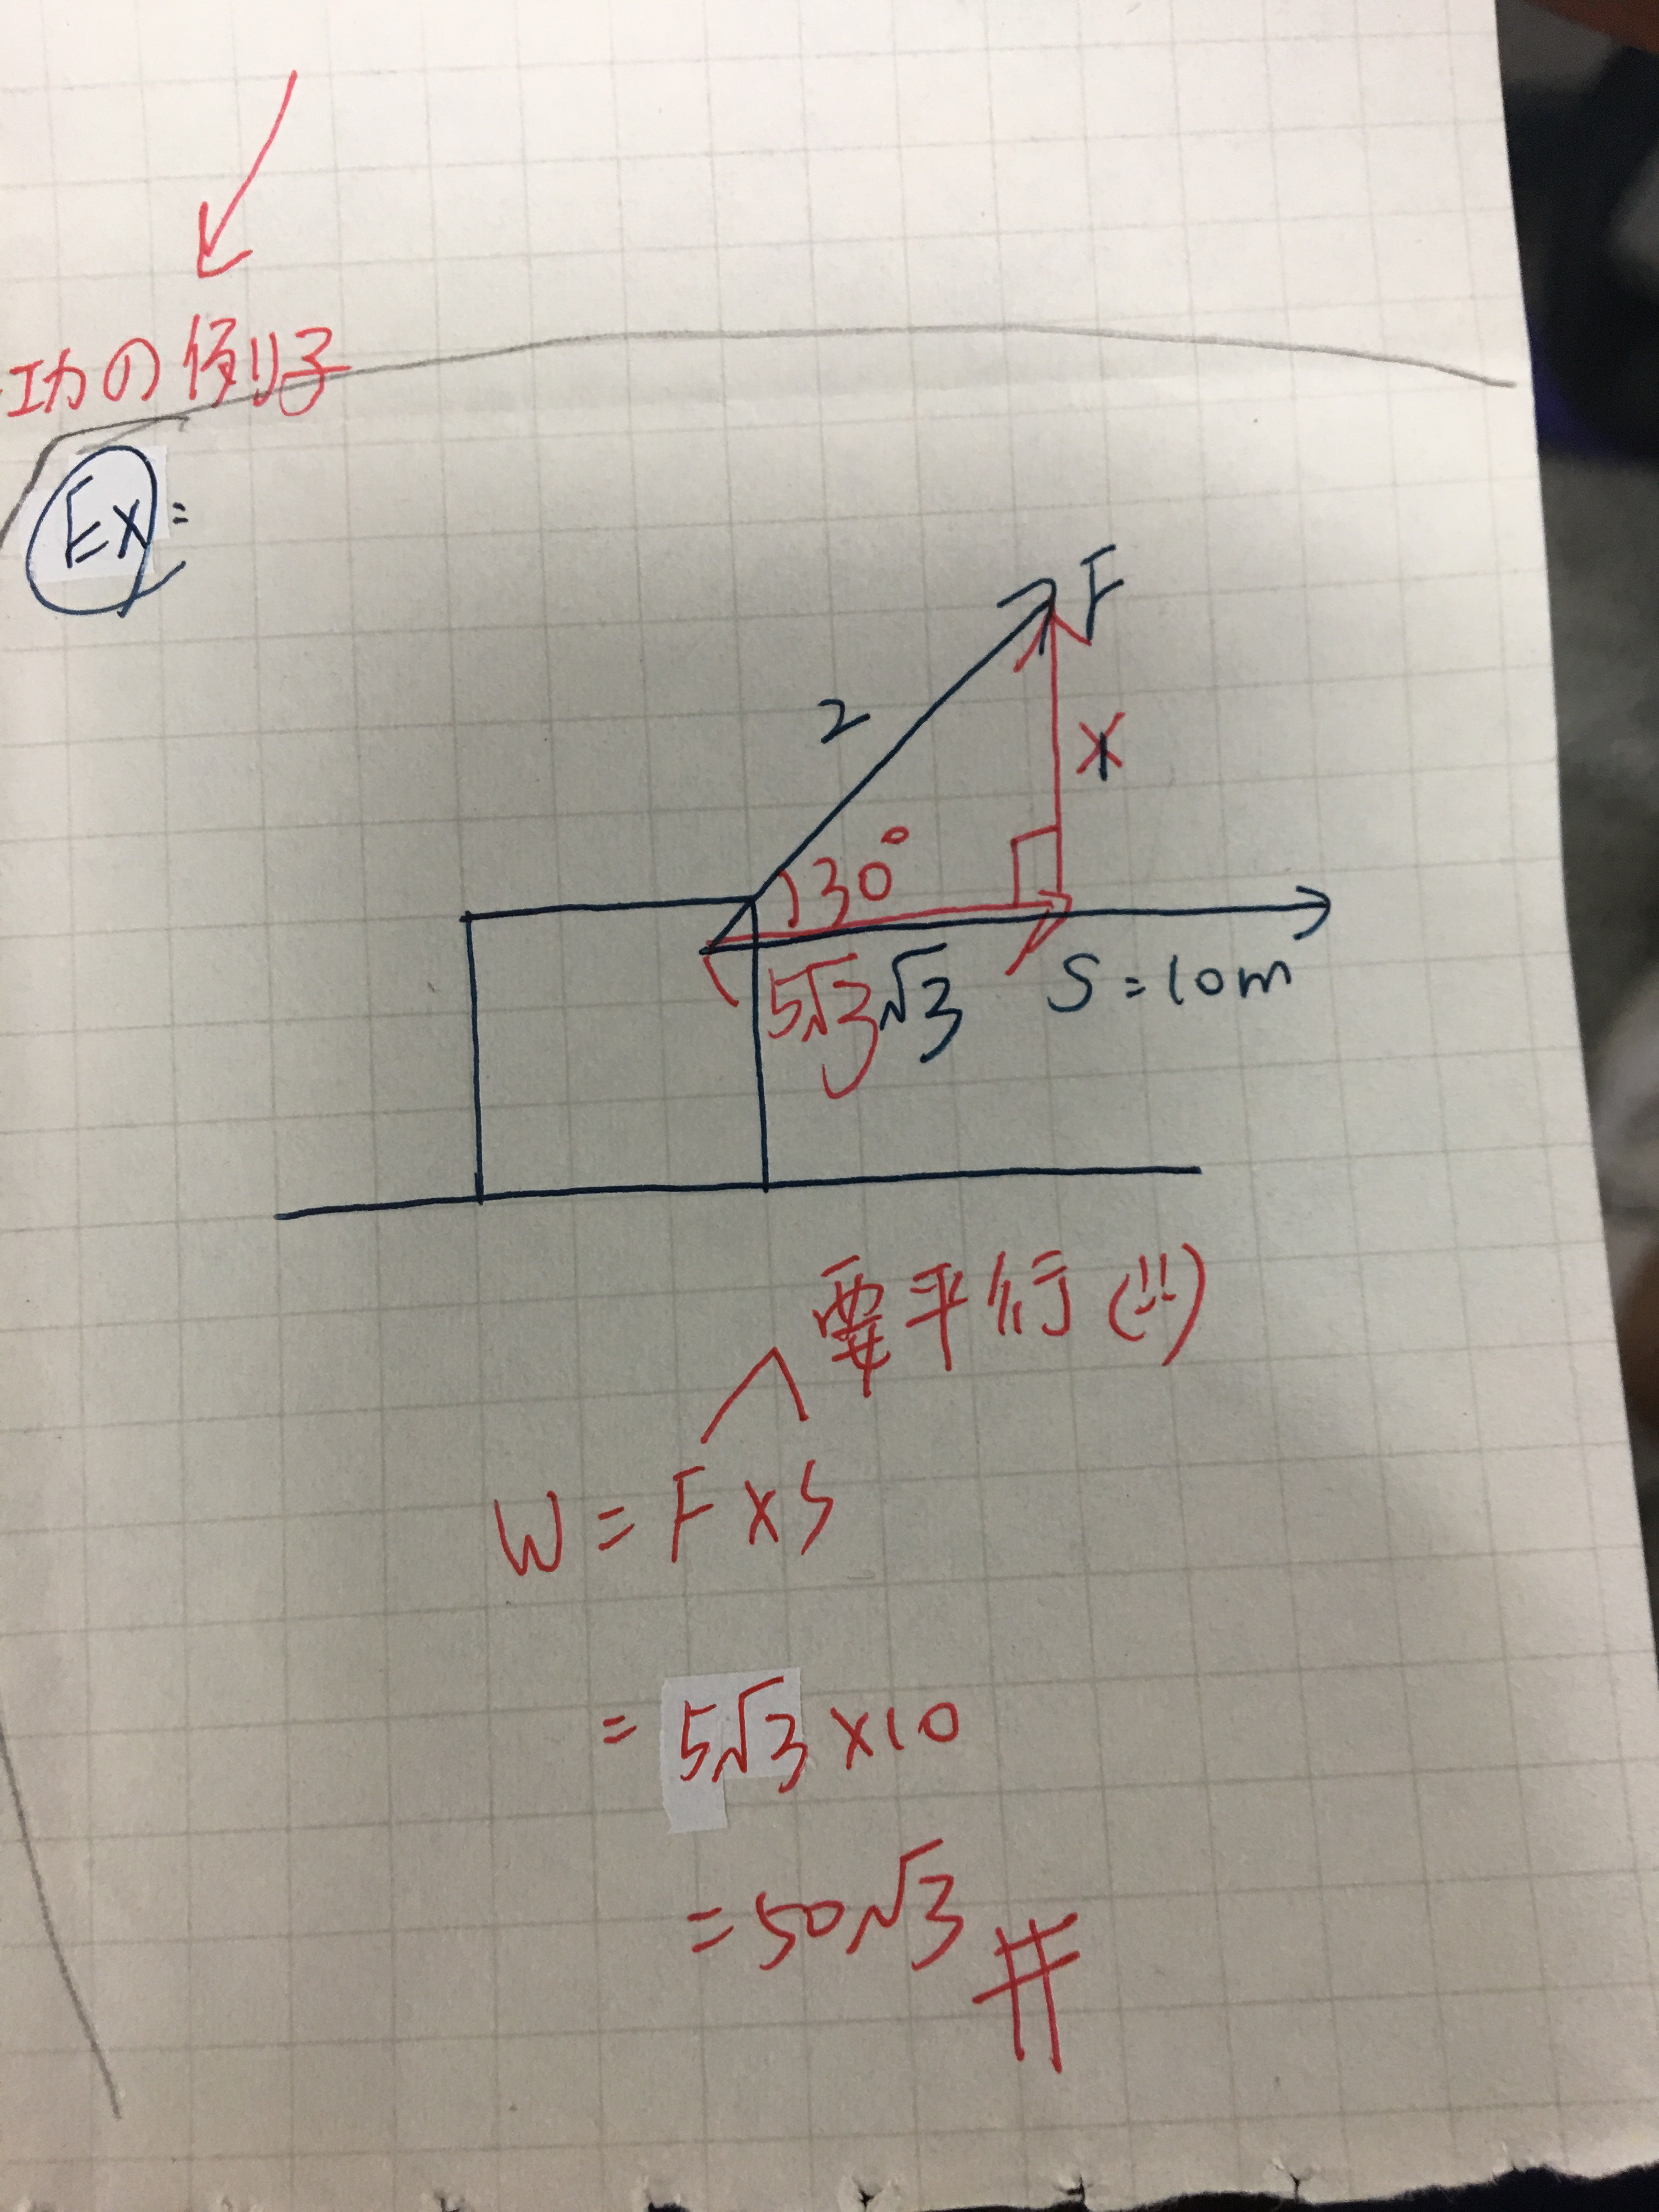 功の例子
Ex:
F
2
X
30°
5√3 √3
S=10m
要平行(!!)
W=F×S
=5√3×10
=50√3 #